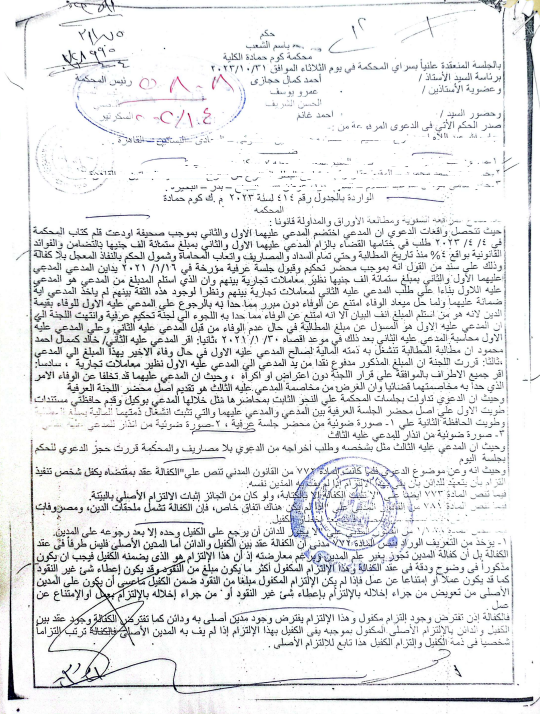 حكم
باسم الشعب
محكمة كوم حمادة الكلية
بالجلسة المنعقدة علنياً بسراي المحكمة في يوم الثلاثاء الموافق ٢٠٢٣/١٠/٣١
برئاسة السيد الأستاذ / أحمد كمال حجازي رئيس المحكمة
وعضوية الأستاذين / عمرو يوسف
الحسن الشريف
وحضور السيد / أحمد غانم السكرتير
صدر الحكم الآتي في الدعوى المرفوعة من :
الواردة بالجدول رقم ٤١٤ لسنة ٢٠٢٣ م.ك كوم حمادة
المحكمه
ومطالعة الاوراق والمداولة قانونا :
حيث تتحصل واقعات الدعوي ان المدعي اختصم المدعي عليهما الاول والثاني بموجب صحيفة اودعت قلم كتاب المحكمة
في ٤ / ٤ / ٢٠٢٣ طلب في ختامها القضاء بالزام المدعي عليهما الاول والثاني بمبلغ ستمائة الف جنيها بالتضامن والفوائد
القانونية بواقع ٤% منذ تاريخ المطالبة وحتي تمام السداد والمصاريف واتعاب المحاماة وشمول الحكم بالنفاذ المعجل بلا كفالة
وذلك علي سند من القول انه بموجب محضر تحكيم وقبول جلسة عرفية مؤرخة في ٢٠٢١/١/١٦ يداين المدعي المدعي
عليهما الاول والثاني بمبلغ ستمائة الف جنيها نظير معاملات تجارية بينهم وان الذي استلم المبلغ من المدعي هو المدعي
عليه الاول بناءا علي طلب المدعي عليه الثاني لمعاملات تجارية بينهم ونظرا لوجود هذه الثقة بينهم لم ياخذ المدعي اية
ضمانة عليهما ولما حل ميعاد الوفاء امتنع عن الوفاء دون مبرر مما حدا به بالرجوع علي المدعي عليه الاول للوفاء بقيمة
الدين لانه هو من استلم المبلغ انف البيان الا انه امتنع عن الوفاء مما حدا به اللجوء الي لجنة تحكيم عرفية وانتهت اللجنة الي
ان المدعي عليه الاول هو المسؤل عن مبلغ المطالبة في حال عدم الوفاء من قبل المدعي عليه الثاني وعلي المدعي عليه
الاول محاسبة المدعي عليه الثاني بعد ذلك في موعد اقصاه ٣٠ /١ /٢٠٢١ ،ثانيا: اقر المدعي عليه الثاني/ خالد كمال احمد
محمود ان مطالبة المطالبة تنشغل به ذمته المالية لصالح المدعي عليه الاول في حال وفاء الاخير بهذا المبلغ الي المدعي
ثالثا: قررت اللجنة ان المبلغ المذكور مدفوع نقدا من يد المدعي الي المدعي عليه الاول نظير معاملات تجارية ، سادسا:
اقر جميع الاطراف بالموافقة علي قرار اللجنة دون اعتراض او اكراه ، وحيث ان المدعي عليهما قد تخلفا عن الوفاء الامر
الذي حدا به مخاصمتهم قضائيا وان الغرض من مخاصمة المدعي عليه الثالث هو تقديم اصل محضر الجلسة العرفية
وحيث ان الدعوي تداولت بجلسات المحكمة علي النحو الثابت بمحاضرها مثل خلالها المدعي بوكيل وقدم حافظتي مستندات
طويت الاولي علي اصل محضر الجلسة العرفية بين المدعي والمدعي عليهما والتي تثبت انشغال ذمتهما المالية
وطويت الحافظة الثانية علي ١- صورة ضوئية من محضر جلسة عرفية ، ٢-صورة ضوئية من انذار للمدعي عليه
٣- صورة ضوئية من انذار للمدعي عليه الثالث
وحيث ان المدعي عليه الثالث مثل بشخصه وطلب اخراجه من الدعوي بلا مصاريف والمحكمة قررت حجز الدعوي للحكم
بجلسة اليوم
وحيث انه وعن موضوع الدعوي فلما كانت المادة ٧٧٢ من القانون المدني تنص علي"الكفالة عقد بمقتضاه يكفل شخص تنفيذ
التزام بأن يتعهد للدائن بأن هذا الالتزام إذا لم المدين نفسه.
فيما تنص المادة ٧٧٣ ايضا علي لا تثبت الكفالة إلا بالكتابة، ولو كان من الجائز إثبات الالتزام الأصلي بالبينة.
فيما تنص المادة ٧٨١ المدني علي إذا لم يكن هناك اتفاق خاص، فإن الكفالة تشمل ملحقات الدين، ومصروفات
الكفيل.
الدائن أن يرجع على الكفيل وحده إلا بعد رجوعه على المدين.
١- يؤخذ من التعريف الوارد بنص المادة ٧٧٢ مدني أن الكفالة عقد بين الكفيل والدائن أما المدين الأصلي فليس طرفا في عقد
الكفالة بل أن كفالة المدين تجوز بغير علم المدين وبرغم معارضته إذ أن هذا الإلتزام هو الذي يضمنه الكفيل فيجب ان يكون
مذكورا في وضوح ودقة في عقد الكفالة وهذا الإلتزام المكفول أكثر ما يكون مبلغ من النقود وقد يكون إعطاء شئ غير النقود
كما قد يكون عملا أو إمتناعا عن عمل فإذا لم يكن الإلتزام المكفول مبلغا من النقود ضمن الكفيل ماعسى أن يكون على المدين
الأصلي من تعويض من جراء إخلاله بالإلتزام بإعطاء شئ غير النقود أو من جراء إخلاله بالإلتزام بعمل اوالإمتناع عن
عمل
فالكفالة إذن تفترض وجود إلتزام مكفول وهذا الإلتزام يفترض وجود مدين أصلي به ودائن كما تفترض الكفالة وجود عقد بين
الكفيل والدائن بالإلتزام الأصلي المكفول بموجبه يفى الكفيل بهذا الإلتزام إذا لم يف به المدين الأصلي فالكفالة ترتب التزاما
شخصيا في ذمة الكفيل وإلتزام الكفيل هذا تابع للالتزام الأصلي .